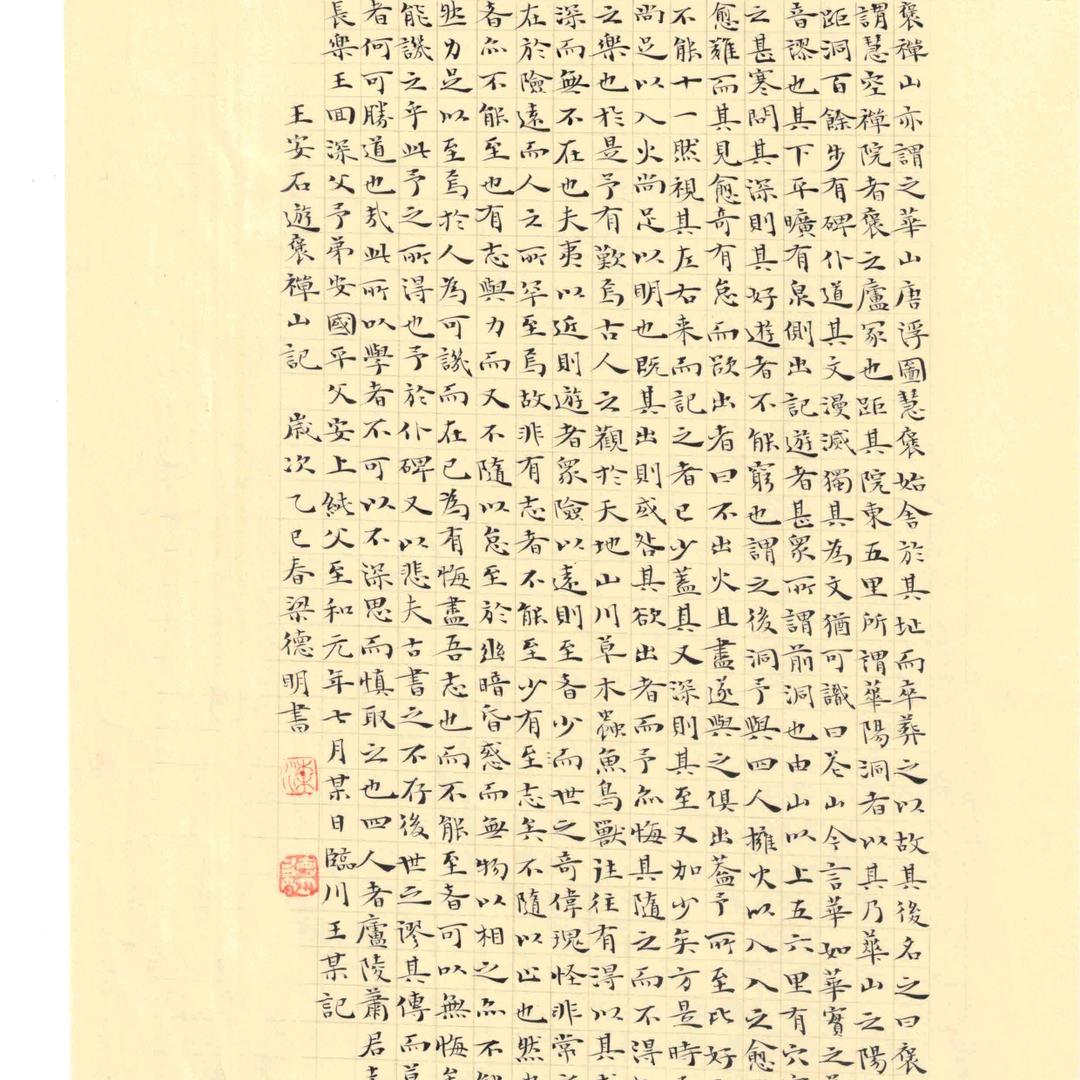 褒禪山亦謂之華山唐浮圖慧褒始舍於其址而卒葬之以故其後名之曰褒
謂慧空禪院者褒之廬冢也距其院東五里所謂華陽洞者以其乃華山之陽
距洞百餘步有碑仆道其文漫滅獨其為文猶可識曰花山今言華如華實之
音謬也其下平曠有泉側出記遊者甚衆所謂前洞也由山以上五六里有穴
之甚寒問其深則其好遊者不能窮也謂之後洞予與四人擁火以入入之愈
愈難而其見愈奇有怠而欲出者曰不出火且盡遂與之俱出蓋予所至比好
不能十一然視其左右来而記之者已少蓋其又深則其至又加少矣方是時
尚足以入火尚足以明也既其出則或咎其欲出者而予亦悔其隨之而不得
之樂也於是予有歎焉古人之觀於天地山川草木蟲魚鳥獸往往有得以其
深而無不在也夫夷以近則遊者衆險以遠則至者少而世之奇偉瑰怪非常
在於險遠而人之所罕至焉故非有志者不能至少有至志矣不隨以止也然
者亦不能至也有志與力而又不隨以怠至於幽暗昏惑而無物以相之亦不
然力足以至焉於人為可譏而在己為有悔盡吾志也而不能至者可以無悔
能譏之乎此予之所得也予於仆碑又以悲夫古書之不存後世之謬其傳而
者何可勝道也哉此所以學者不可以不深思而慎取之也四人者廬陵蕭君
長樂王回深父予弟安國平父安上純父至和元年七月某日臨川王某記
王安石遊褒禪山記 歲次乙巳春梁德明書